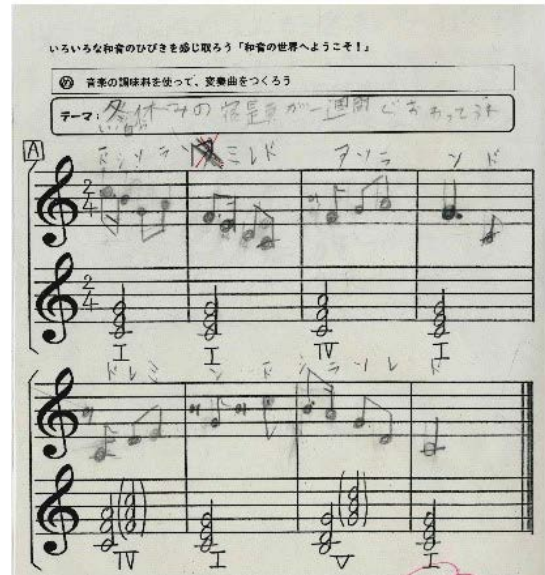 いろいろな和音のひびきを感じ取ろう「和音の世界へようこそ!」
め 音楽の調味料を使って、変奏曲をつくろう
テーマ:冬休みの宿題が一週間でおわって
A
ドシソラ ミレド ラソラ ソ ド
2/4
2/4
I I IV I
ドレミ ソ ド シラソレ ド
IV I V I